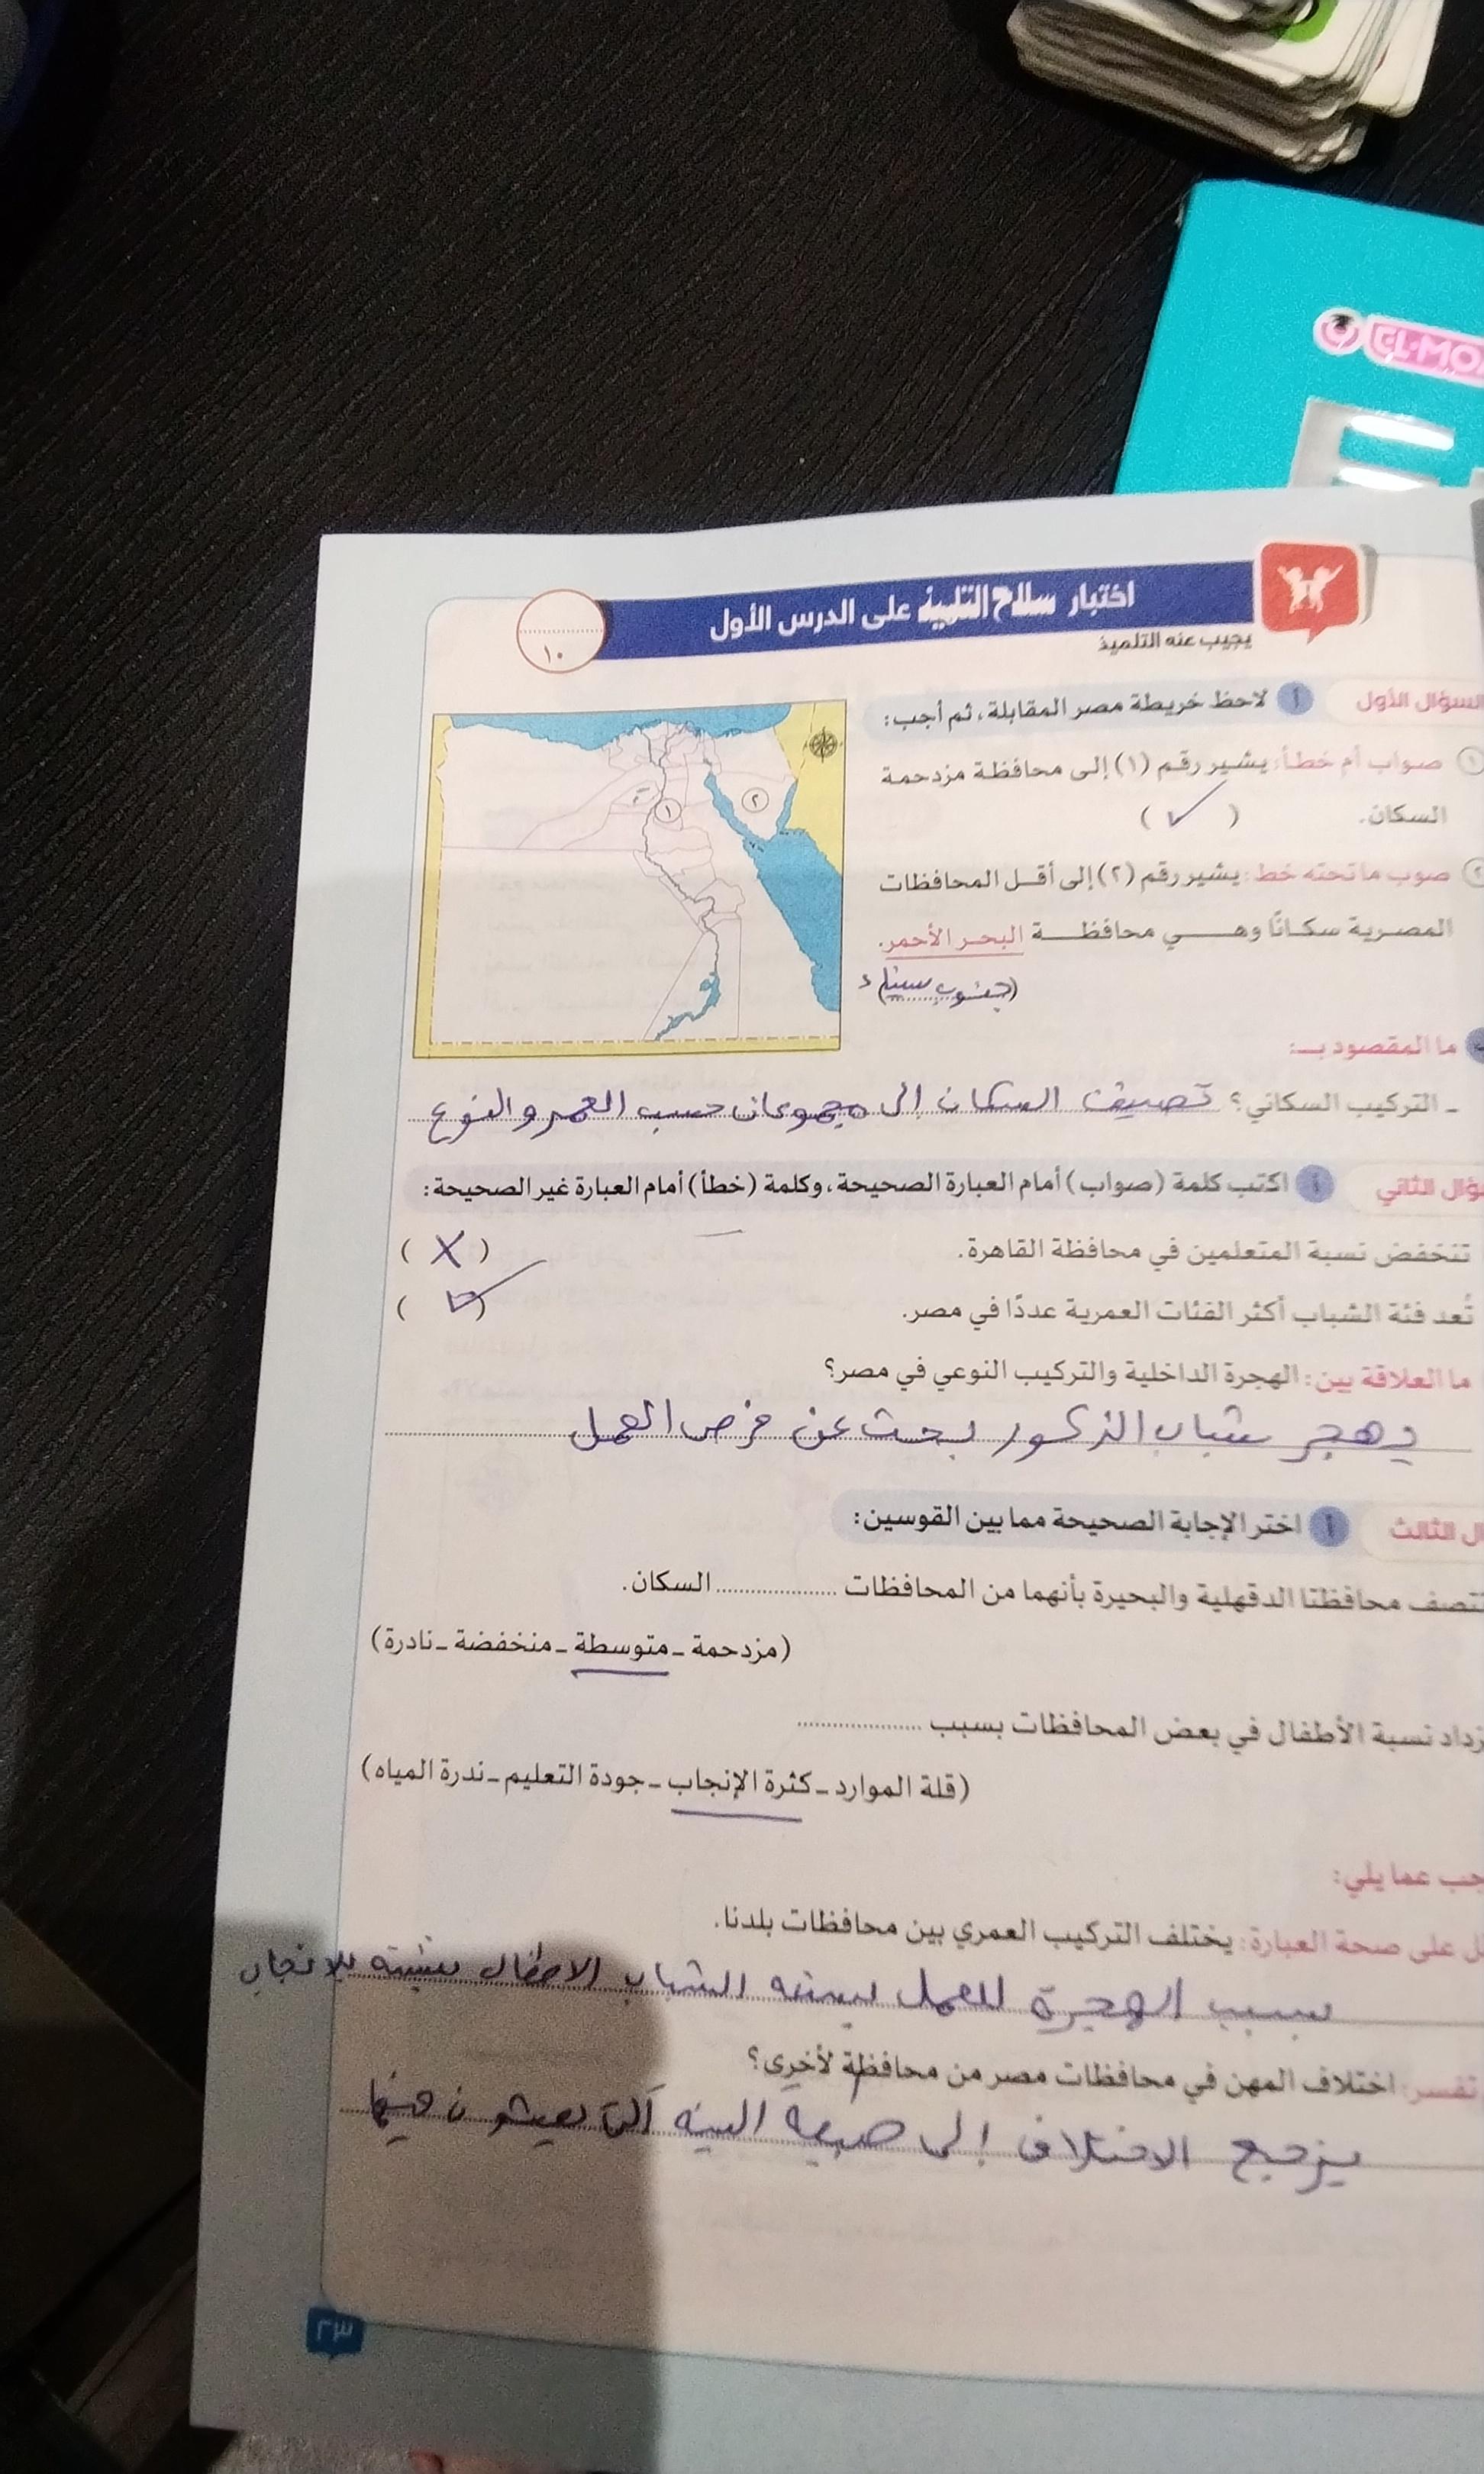 EL-MO
اختبار سلاح التلميذ على الدرس الأول
يجيب عنه التلميذ
١٠
السؤال الأول أ لاحظ خريطة مصر المقابلة، ثم أجب:
١ صواب أم خطأ: يشير رقم (١) إلى محافظة مزدحمة
السكان. ( ✓ )
٢ صوب ما تحته خط: يشير رقم (٢) إلى أقل المحافظات
المصرية سكانًا وهي محافظة البحر الأحمر.
(جنوب سيناء)
١
٢
ما المقصود بـ:
ـ التركيب السكاني؟ تصنيف السكان إلى مجموعات حسب العمر والنوع
ؤال الثاني أ اكتب كلمة (صواب) أمام العبارة الصحيحة، وكلمة (خطأ) أمام العبارة غير الصحيحة:
تنخفض نسبة المتعلمين في محافظة القاهرة. ( X )
تُعد فئة الشباب أكثر الفئات العمرية عددًا في مصر. ( ✓ )
ما العلاقة بين: الهجرة الداخلية والتركيب النوعي في مصر؟
يهجر شباب الذكور بحث عن فرص العمل
ل الثالث أ اختر الإجابة الصحيحة مما بين القوسين:
تتصف محافظتا الدقهلية والبحيرة بأنهما من المحافظات .................... السكان.
(مزدحمة ـ متوسطة ـ منخفضة ـ نادرة)
زداد نسبة الأطفال في بعض المحافظات بسبب ....................
(قلة الموارد ـ كثرة الإنجاب ـ جودة التعليم ـ ندرة المياه)
جب عما يلي:
ل على صحة العبارة: يختلف التركيب العمري بين محافظات بلدنا.
بسبب الهجرة للعمل الشباب الاطفال للانجاب
تفسر: اختلاف المهن في محافظات مصر من محافظة لأخرى؟
يرجع الاختلاف إلى طبيعة البيئه التى يعيشون فيها
٢٣